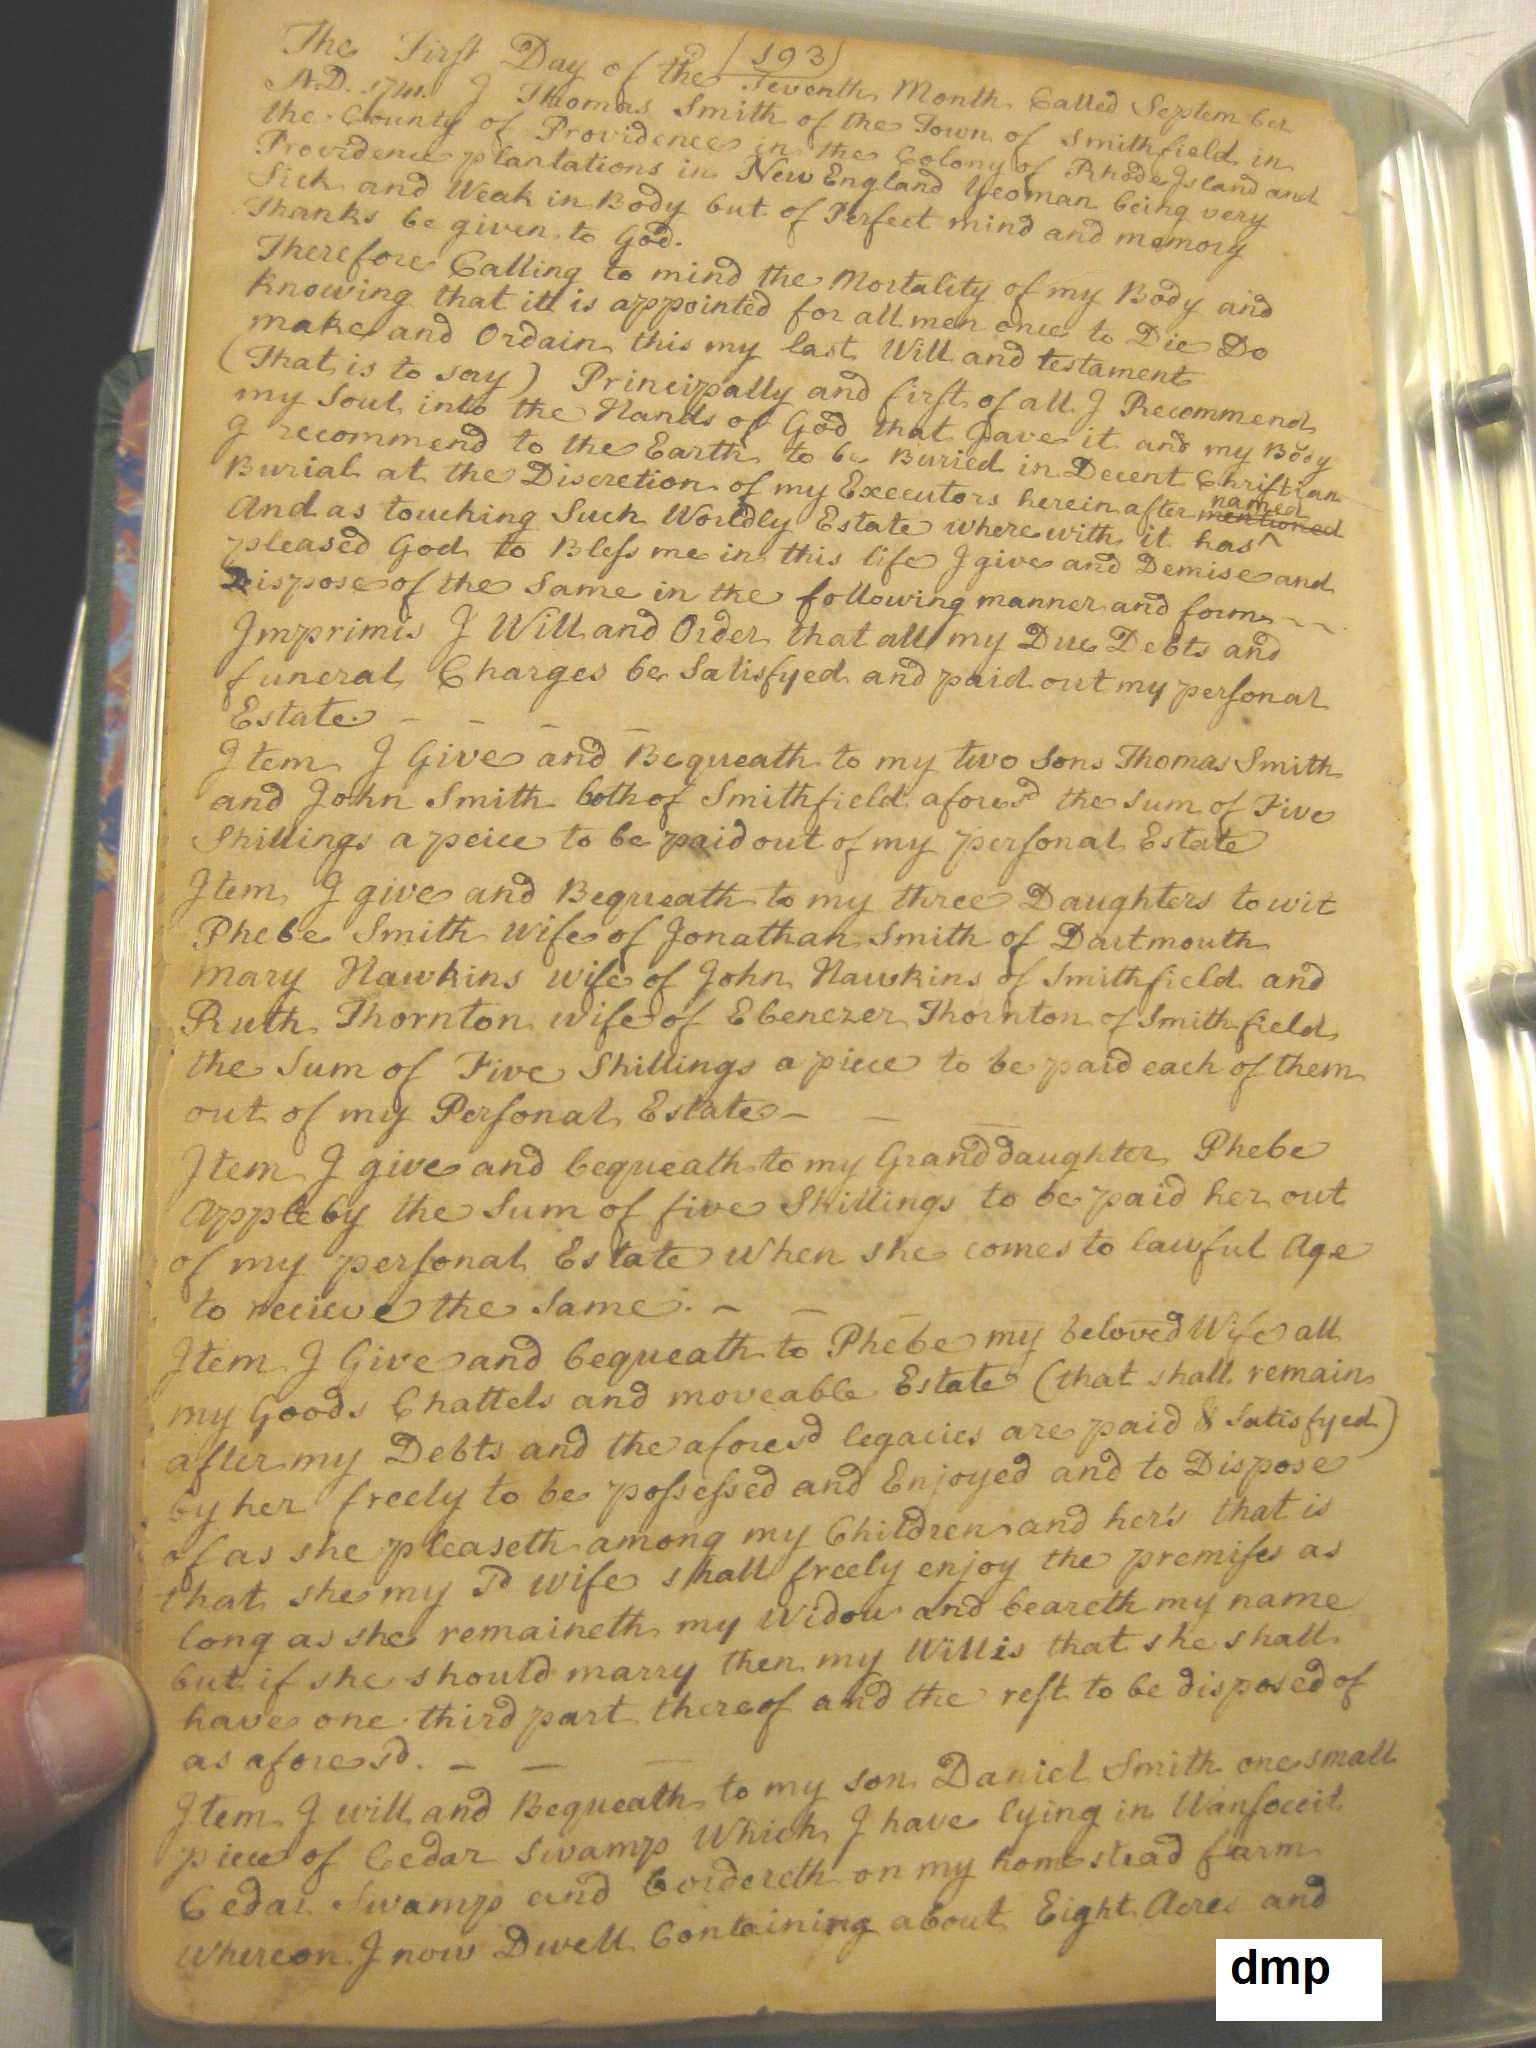 193
The First Day of the Seventh Month Called September
A.D. 1741. I Thomas Smith of the Town of Smithfield in
the County of Providence in the Colony of Rhode Island and
Providence plantations in New England Yeoman being very
Sick and Weak in Body but of Perfect mind and memory
Thanks be given to God.
Therefore Calling to mind the Mortality of my Body and
Knowing that itt is appointed for all men once to Die Do
make and Ordain this my last Will and testament
(That is to say) Principally and first of all I Recommend
my Soul into the Hands of God that gave it and my Body
I recommend to the Earth to be Buried in Decent Christian
Burial at the Discretion of my Executors herein after mentioned
named
And as touching Such Worldly Estate where with it has ^
pleased God to Bless me in this life I give and Demise and
Dispose of the Same in the following manner and form - -
Imprimis I Will and Order that all my Due Debts and
funeral Charges be Satisfyed and paid out my personal
Estate. - - - -
Item I Give and Bequeath to my two Sons Thomas Smith
and John Smith both of Smithfield afores.d the Sum of Five
Shillings a peice to be paid out of my personal Estate
Item I give and Bequeath to my three Daughters to wit
Phebe Smith Wife of Jonathan Smith of Dartmouth
Mary Hawkins wife of John Hawkins of Smithfield and
Ruth Thornton wife of Ebenezer Thornton of Smithfield
the Sum of Five Shillings a piece to be paid each of them
out of my Personal Estate - - -
Item I give and bequeath to my Grand daughter Phebe
Appleby the Sum of five Shillings to be paid her out
of my personal Estate when she comes to lawful Age
to recieve the Same. - - -
Item I Give and bequeath to Phebe my beloved Wife all
my Goods Chattels and moveable Estate (that shall remain
after my Debts and the aforesd legacies are paid & Satisfyed)
by her freely to be possessed and Enjoyed and to Dispose
of as she pleaseth among my Children and her's that is
that she my Sd wife shall freely enjoy the premises as
long as she remaineth my Widow and beareth my name
but if she should marry then my Will is that she shall
have one third part thereof and the rest to be disposed of
as aforesd. - - -
Item I will and Bequeath to my son Daniel Smith one small
piece of Cedar Swamp Which I have lying in
Cedar Swamp and bordereth on my home stead farm
whereon I now Dwell Containing about Eight Acres and
dmp